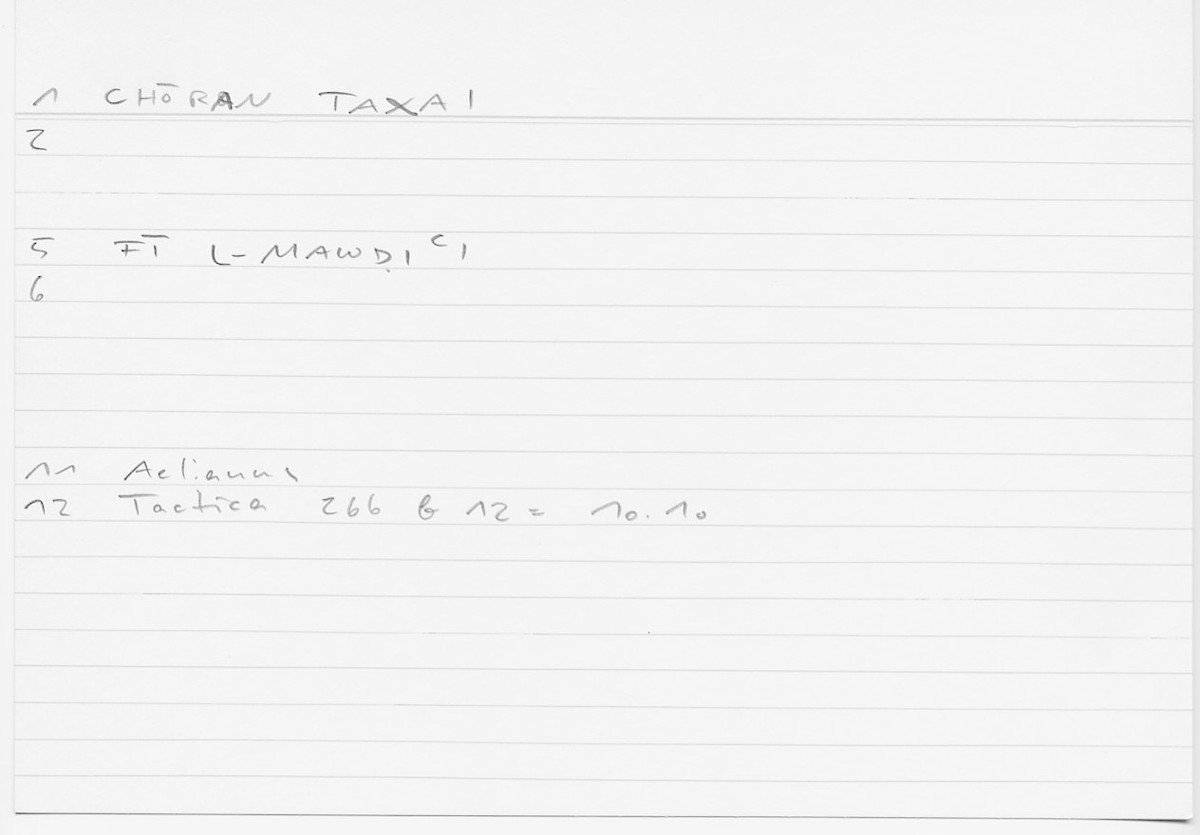 1 CHŌRAN TAXAI
2
5 FĪ L-MAWḌIʿI
6
11 Aelianus
12 Tactica 266 b 12 = 10.10